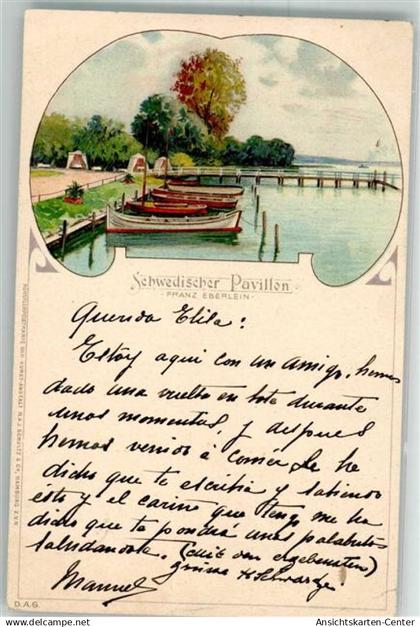 Schwedischer Pavillon
FRANZ EBERLEIN
Querida Elila:
Estoy aqui con un amigo, hemos
dado una vuelta en bote durante
unos momentos, y despues
hemos venido á comer. Le he
dicho que te escribia y sabiendo
ésto y el cariño que tengo me ha
dicho que te pondrá unas palabritas
saludandote. (mit den ergebensten)
Manuel
D.A.G.
Ansichtskarten-Center
www.ansichtskarten-center.de